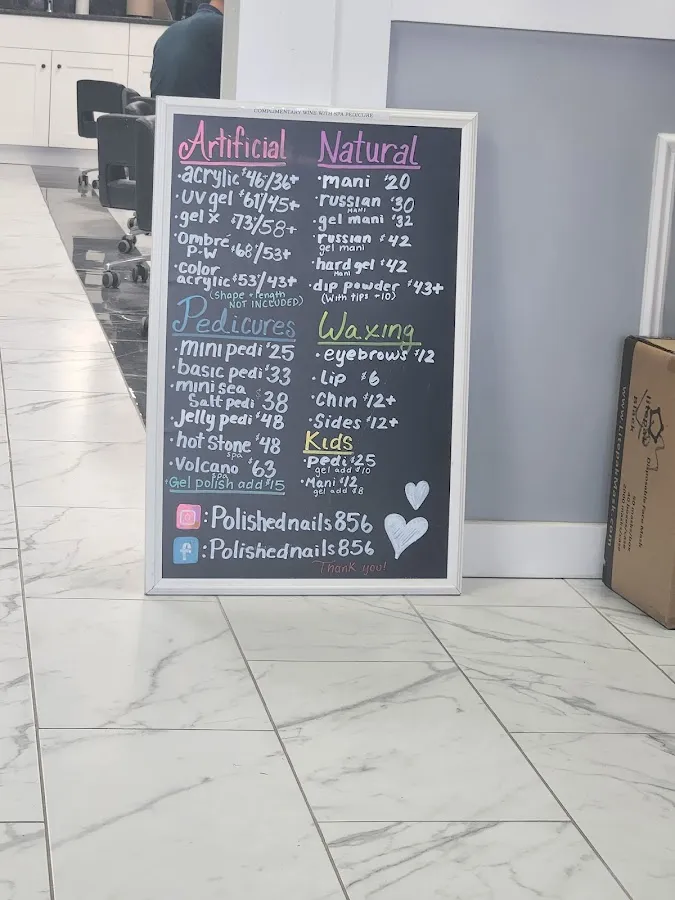 COMPLIMENTARY WINE WITH SPA PEDICURE
Artificial
·acrylic $46/36+
·UV gel $61/45+
·gel x $73/58+
·Ombré P-W $68/53+
·color acrylic $53/43+
(shape + length NOT INCLUDED)
Pedicures
·mini pedi $25
·basic pedi $33
·mini sea Salt pedi $38
·Jelly pedi $48
·hot Stone spa $48
·Volcano spa $63
+Gel polish add $15
Natural
·mani $20
·russian MANI $30
·gel mani $32
·russian gel mani $42
·hard gel Mani $42
·dip powder $43+
(With tips +10)
Waxing
·eyebrows $12
·Lip $6
·Chin $12+
·Sides $12+
Kids
·pedi $25
gel add $10
·Mani $12
gel add $8
:Polishednails856
:Polishednails856
Thank you!
Black
Disposable Face Mask